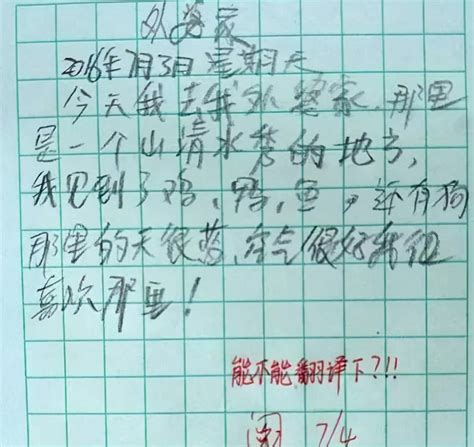 外婆家
2016年7月3日 星期天
今天我去我外婆家.那里
是一个山清水秀的地方,
我见到了鸡,鸭,鱼,还有狗
那里的天很蓝、空气很好我很
喜欢那里!
能不能翻译下?!!
阅 7/4